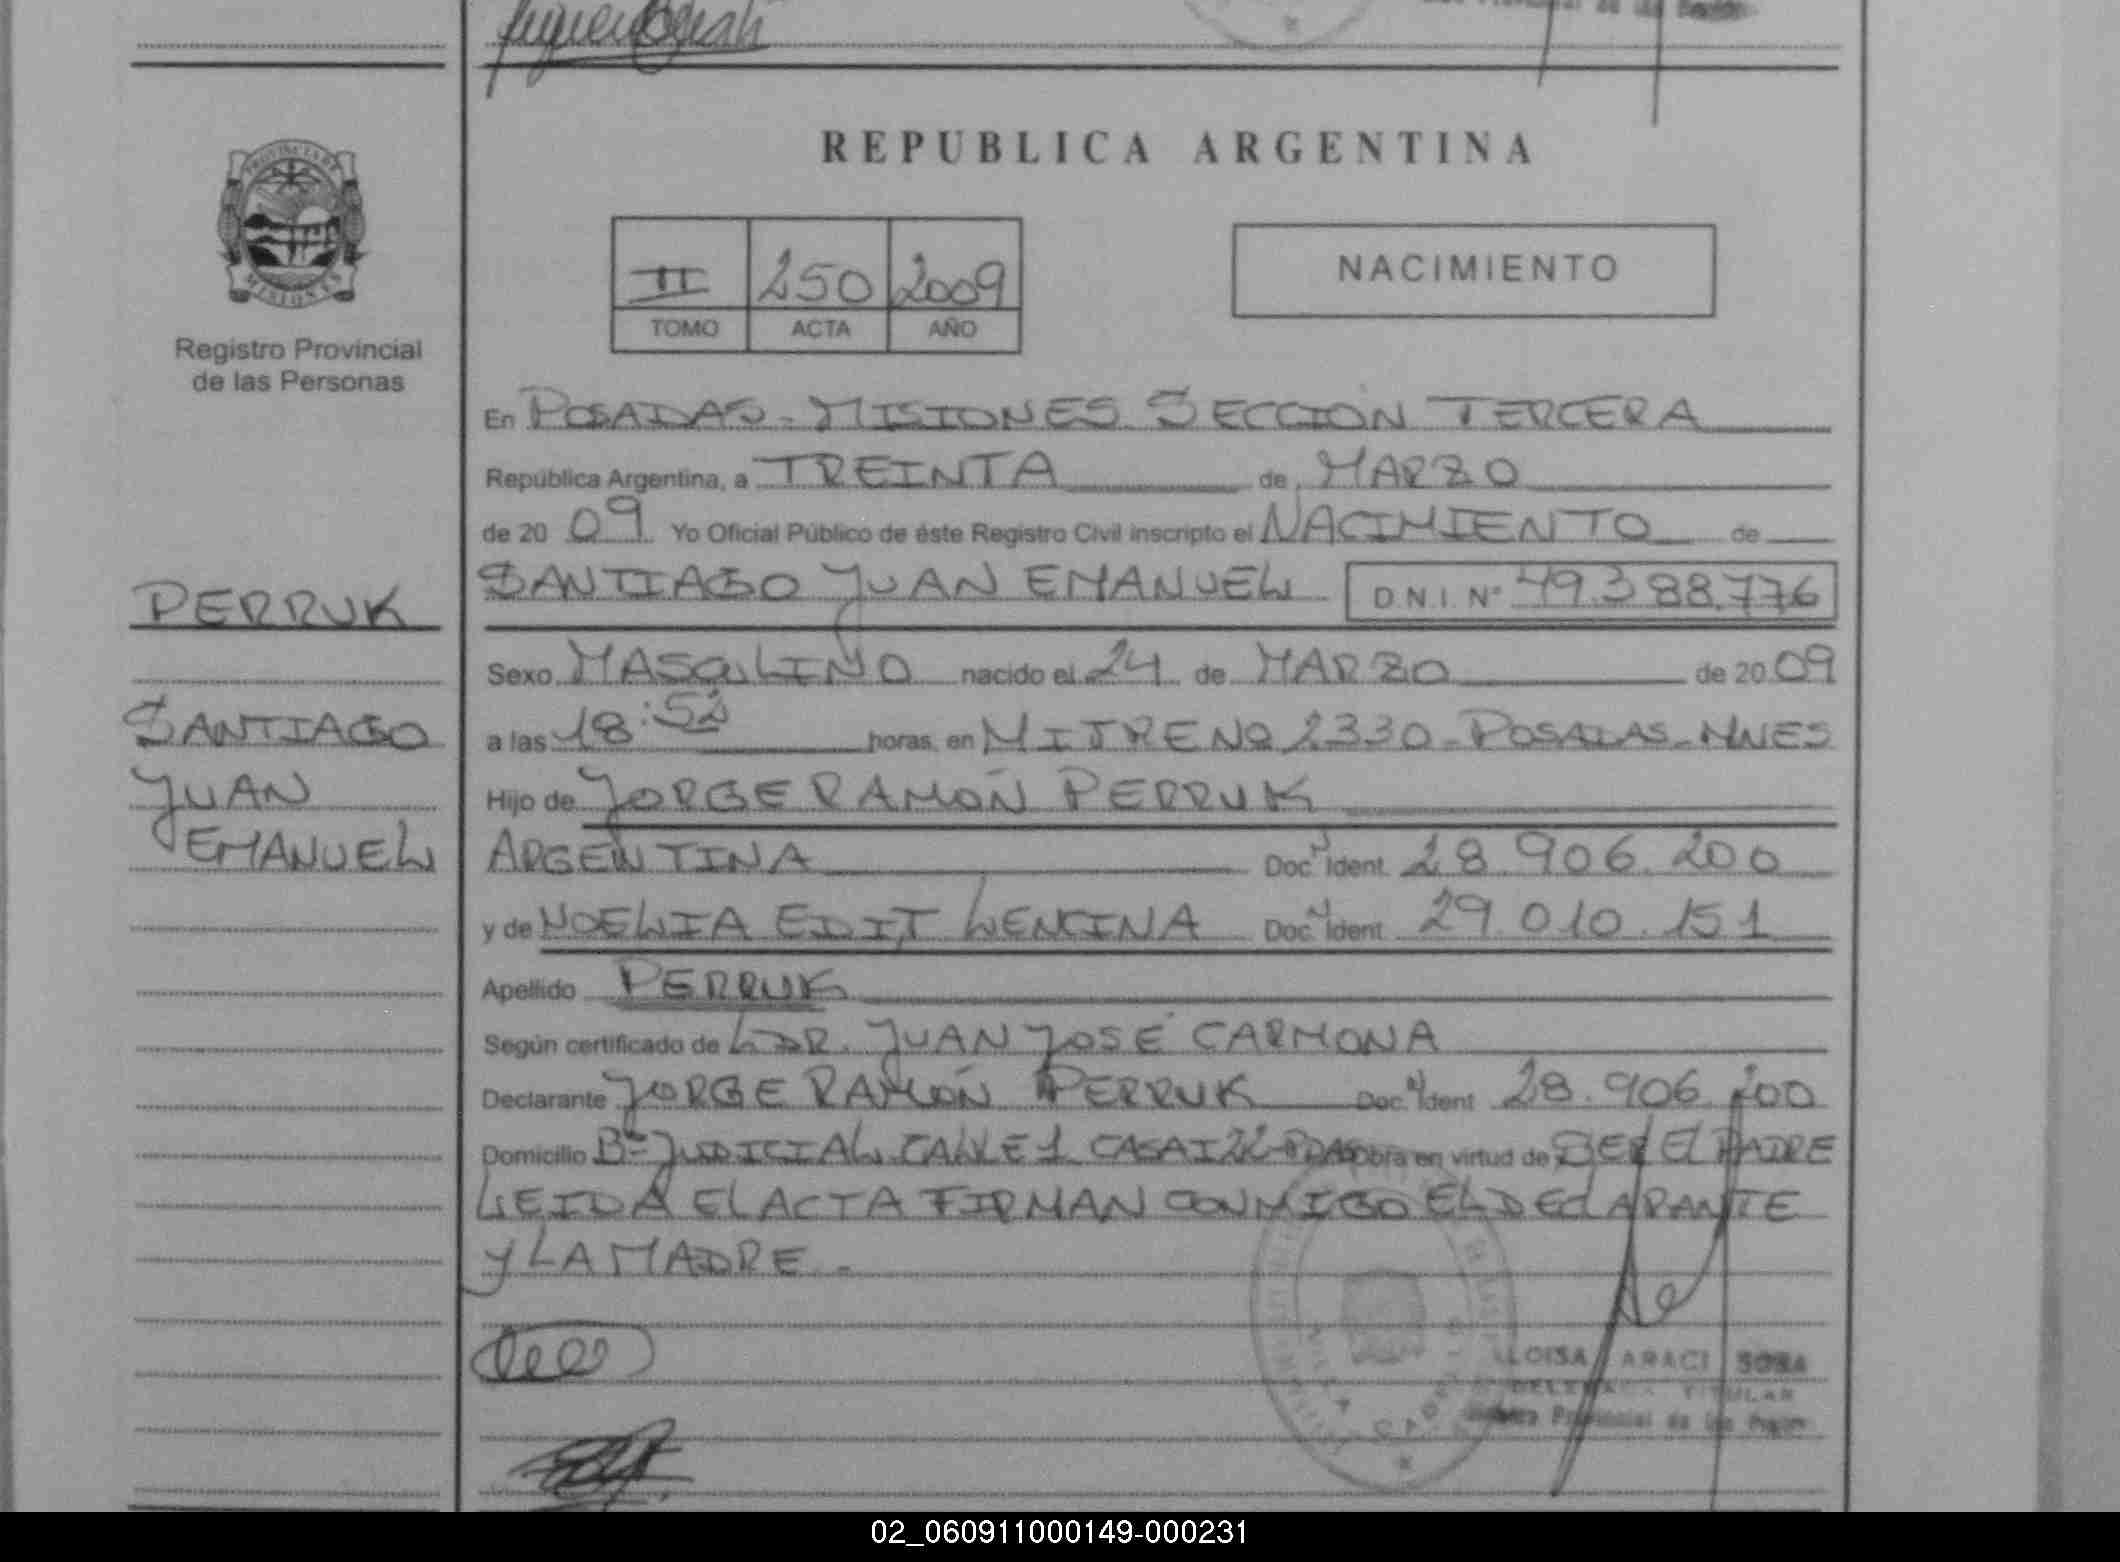 REPUBLICA ARGENTINA
PROVINCIA DE
MISIONES
Registro Provincial
de las Personas
II 250 2009
TOMO ACTA AÑO
NACIMIENTO
En POSADAS - MISIONES SECCION TERCERA
República Argentina, a TREINTA de MARZO
de 20 09 Yo Oficial Público de éste Registro Civil inscripto el NACIMIENTO de
SANTIAGO JUAN EMANUEL D.N.I. Nº 49.388.776
PERRUK
SANTIAGO
JUAN
EMANUEL
Sexo MASCULINO nacido el 24 de MARZO de 20 09
a las 18:52 horas, en MITRE Nº 2330 - POSADAS - MNES
Hijo de JORGE RAMÓN PERRUK
ARGENTINA Doc. N Ident. 28.906.200
y de NOELIA EDIT LENCINA Doc. N Ident. 29.010.151
Apellido PERRUK
Según certificado de DR. JUAN JOSÉ CARMONA
Declarante JORGE RAMÓN PERRUK Doc. N Ident 28.906.200
Domicilio Bº JUDICIAL CALLE 1 CASA obra en virtud de SER EL PADRE
LEIDA EL ACTA FIRMAN CONMIGO EL DECLARANTE
Y LA MADRE -
LOISA ARACI SOSA
DELEGADA TITULAR
Provincial de las
02_060911000149-000231